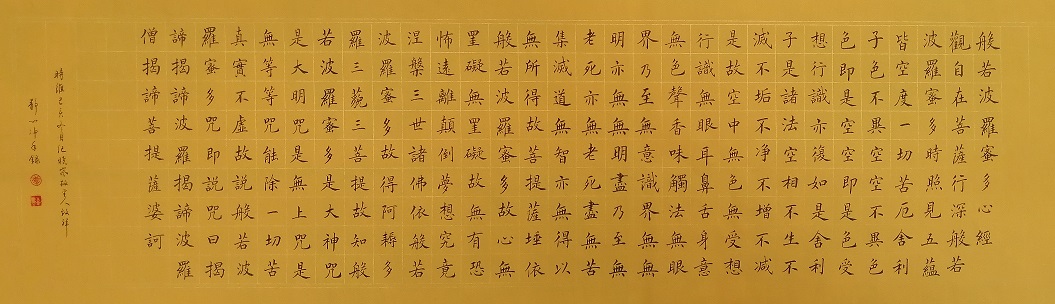 般若波羅蜜多心經
觀自在菩薩行深般若
波羅蜜多時照見五蘊
皆空度一切苦厄舍利
子色不異空空不異色
色即是空空即是色受
想行識亦復如是舍利
子是諸法空相不生不
滅不垢不淨不增不減
是故空中無色無受想
行識無眼耳鼻舌身意
無色聲香味觸法無眼
界乃至無意識界無無
明亦無無明盡乃至無
老死亦無老死盡無苦
集滅道無智亦無得以
無所得故菩提薩埵依
般若波羅蜜多故心無
罣礙無罣礙故無有恐
怖遠離顛倒夢想究竟
涅槃三世諸佛依般若
波羅蜜多故得阿耨多
羅三藐三菩提故知般
若波羅蜜多是大神咒
是大明咒是無上咒是
無等等咒能除一切苦
真實不虛故說般若波
羅蜜多咒即說咒曰揭
諦揭諦波羅揭諦波羅
僧揭諦菩提薩婆訶
時維己亥